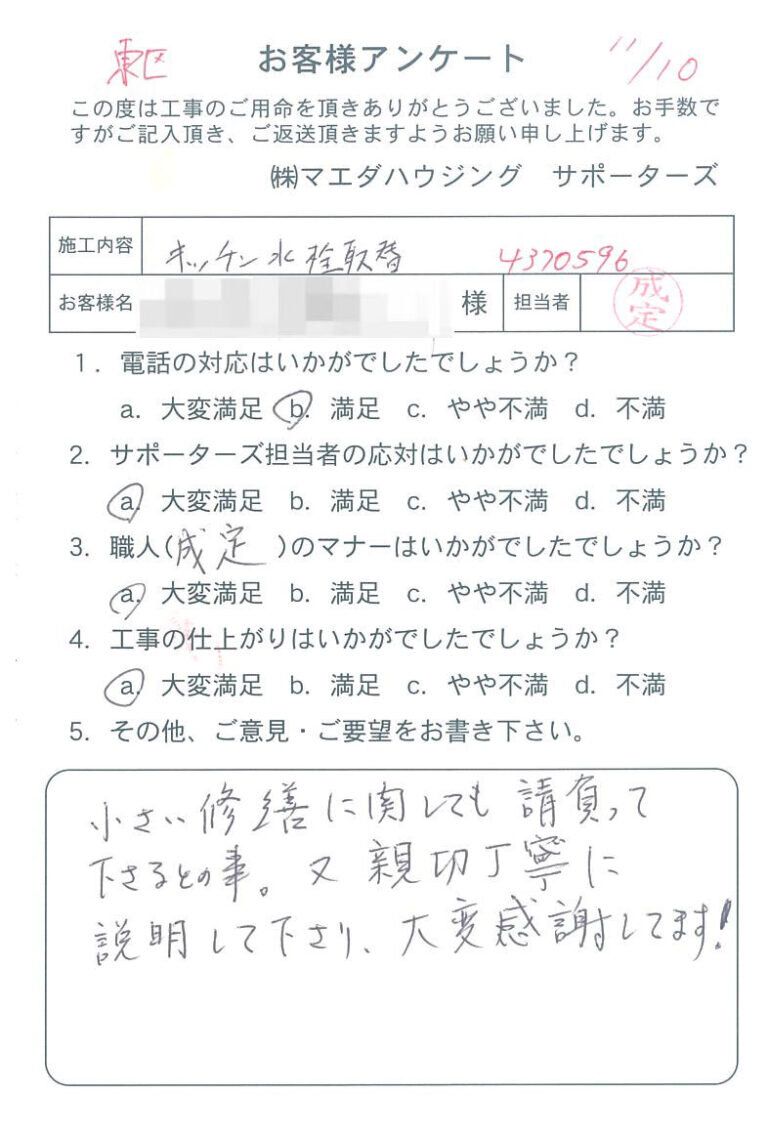 東区 お客様アンケート 11/10
この度は工事のご用命を頂きありがとうございました。お手数で
すがご記入頂き、ご返送頂きますようお願い申し上げます。
㈱マエダハウジング サポーターズ
施工内容 キッチン水栓取替 4370596
お客様名 様 担当者 成定
1. 電話の対応はいかがでしたでしょうか？
a. 大変満足 b. 満足 c. やや不満 d. 不満
2. サポーターズ担当者の応対はいかがでしたでしょうか？
a. 大変満足 b. 満足 c. やや不満 d. 不満
3. 職人(成定)のマナーはいかがでしたでしょうか？
a. 大変満足 b. 満足 c. やや不満 d. 不満
4. 工事の仕上がりはいかがでしたでしょうか？
a. 大変満足 b. 満足 c. やや不満 d. 不満
5. その他、ご意見・ご要望をお書き下さい。
小さい修繕に関しても請負って
下さるとの事。又親切丁寧に
説明して下さり、大変感謝してます!